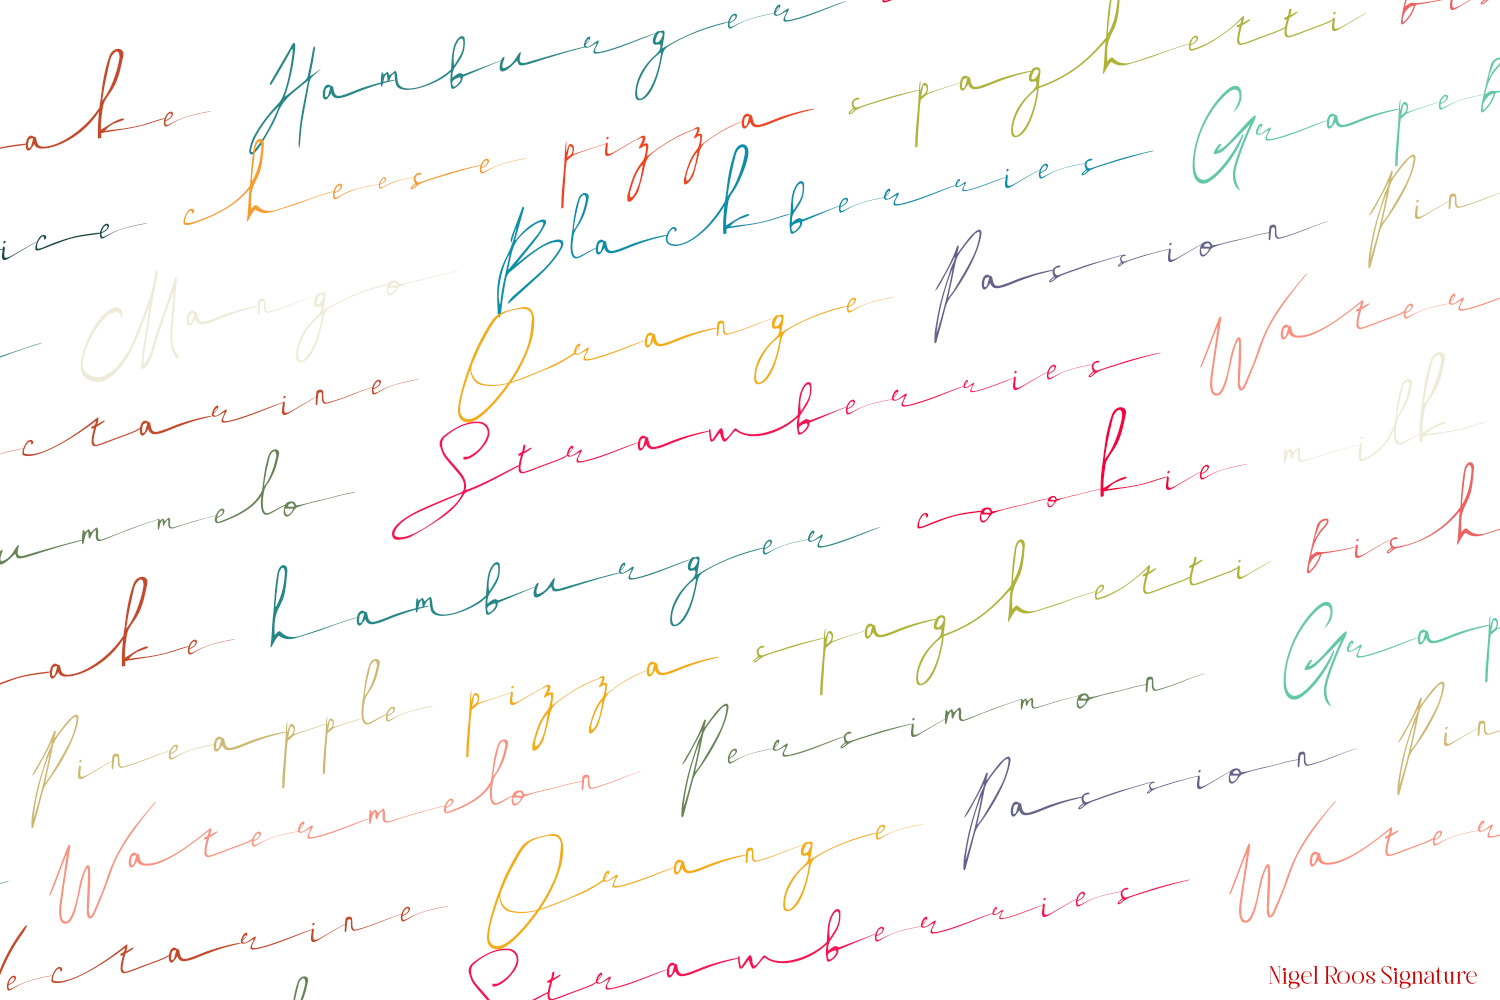 ake Hamburger
ice cheese pizza spaghetti bis
Mango Blackberries Grapeb
ctarine Orange Passion Pin
ummelo Strawberries Water
ake hamburger cookie milk
Pineapple pizza spaghetti bish
Watermelon Persimmon Grap
ectarine Orange Passion Pin
Strawberries Water
Nigel Roos Signature